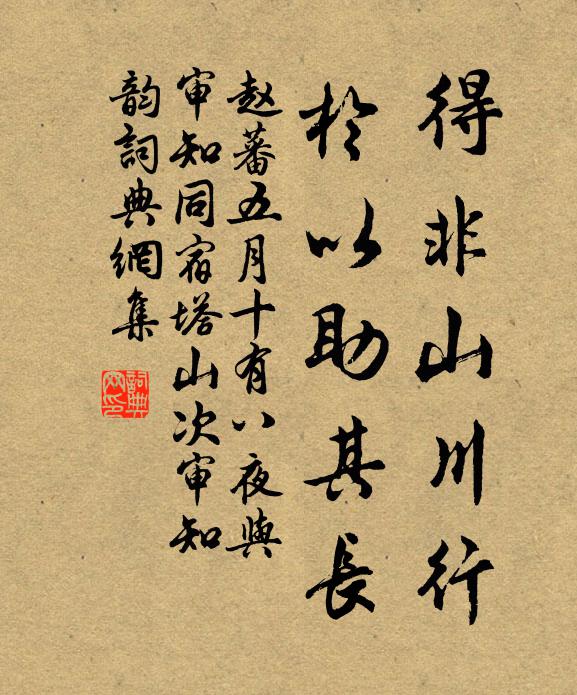 得非山川行
於以助其長
赵蕃五月十有八夜與
审知同宿塔山次审知
韵詞典網集
詞典網印